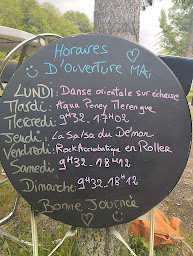 Horaires
D'ouverture Mai
LUNDI : Danse orientale sur échasse
Mardi : Aqua Poney Merengue
Mercredi : 9H32_17H02
Jeudi : La Salsa du Démon
Vendredi : Rock Acrobatique en Roller
Samedi : 9H32_18H12
Dimanche : 9H32_18H12
Bonne Journée